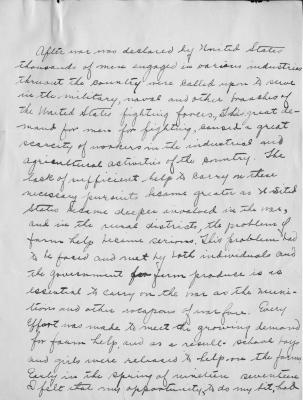 After war was declared by United States
thousands of men engaged in various industries
thruout the country were called upon to serve
in the military, naval and other braches of
the United States fighting forces, This great de-
mand for men for fighting, caused a great
scarcity of workers in the industrial and
agricultural activities of the country. The
lack of sufficient help to carry on these
necessary pursuits became greater as U-Sited
States became deeper involved in the war,
and in the rural districts, the problem of
farm help became serious. This problem had
to be faced and met by both individuals and
the government for farm produce is as
essential to carry on the war as the muni-
tions and other weapons of warfare. Every
effort was made to meet the growing demand
for farm help, and as a result- school boys
and girls were released to help on the farms
Early in the spring of nineteen seventeen
I felt that my opportunity, to do my bit, had